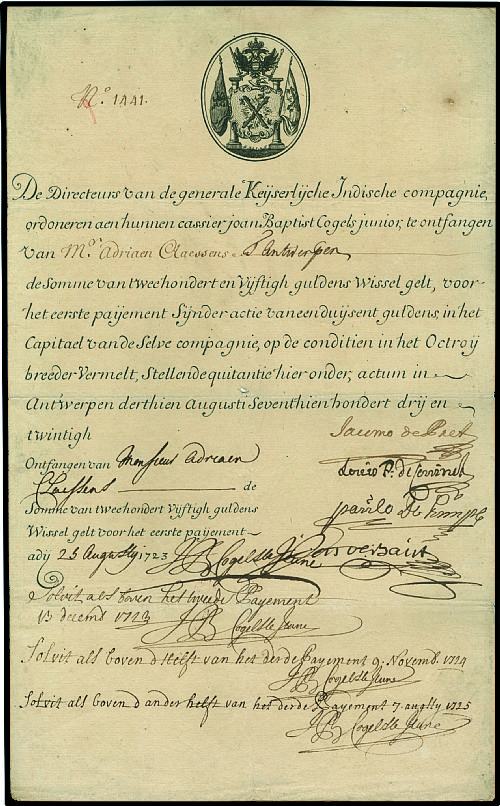 N.º 1441.
De Directeurs van de generale Keijserlijche Indische compagnie,
ordoneren aen hunnen cassier joan Baptist Cogels junior, te ontfangen
van M.r Adriaen Claessens T'antwerpen
de Somme van tweehondert en Vijftigh guldens Wissel gelt, voor
het eerste paijement Sijnder actie van eenduijsent guldens, in het
Capitael van de Selve compagnie, op de conditien in het Octroij
breeder Vermelt, Stellende quitantie hier onder, actum in
Antwerpen derthien Augusti Seventhien hondert drij en
twintigh
Jacomo de Pret
Ontfangen van Monsieur Adriaen
Claessens de
Somme van tweehondert Vijftigh guldens
Wissel gelt voor het eerste paijement
adij 25 Augusty 1723 JB Cogels le Jeune
Solvit als boven het tweede Payement
13 decemb 1723 JB Cogels le Jeune
Solvit als boven d helft van het derde Payement 9. Novemb. 1724
JB Cogels le Jeune
Solvit als boven d ander helft van het derde Payement 7. augsty 1725
JB Cogels le Jeune